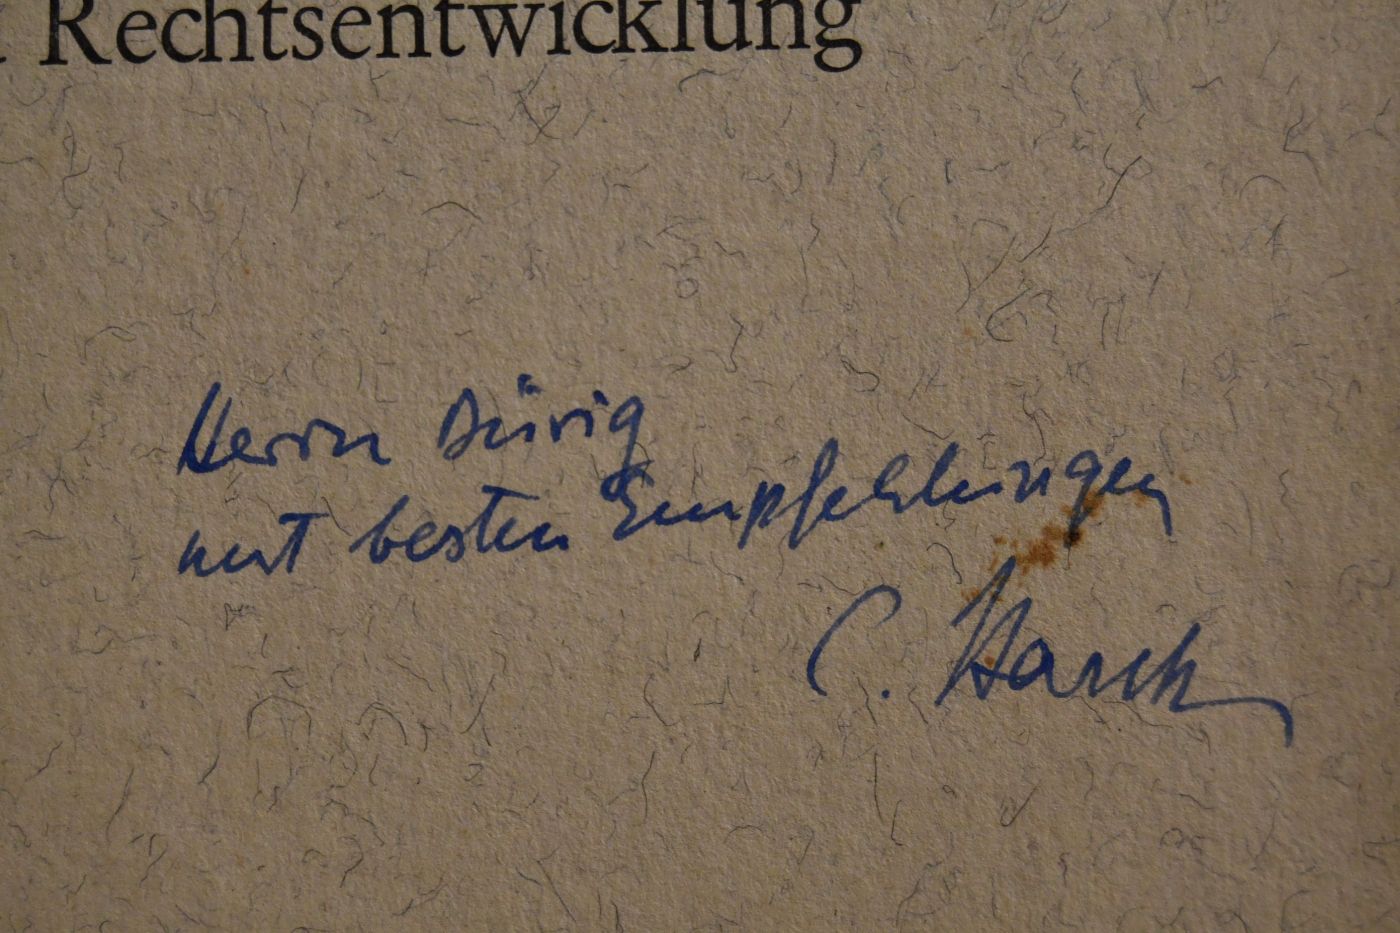 Rechtsentwicklung
Herrn Dürig
mit besten Empfehlungen
C. Starck